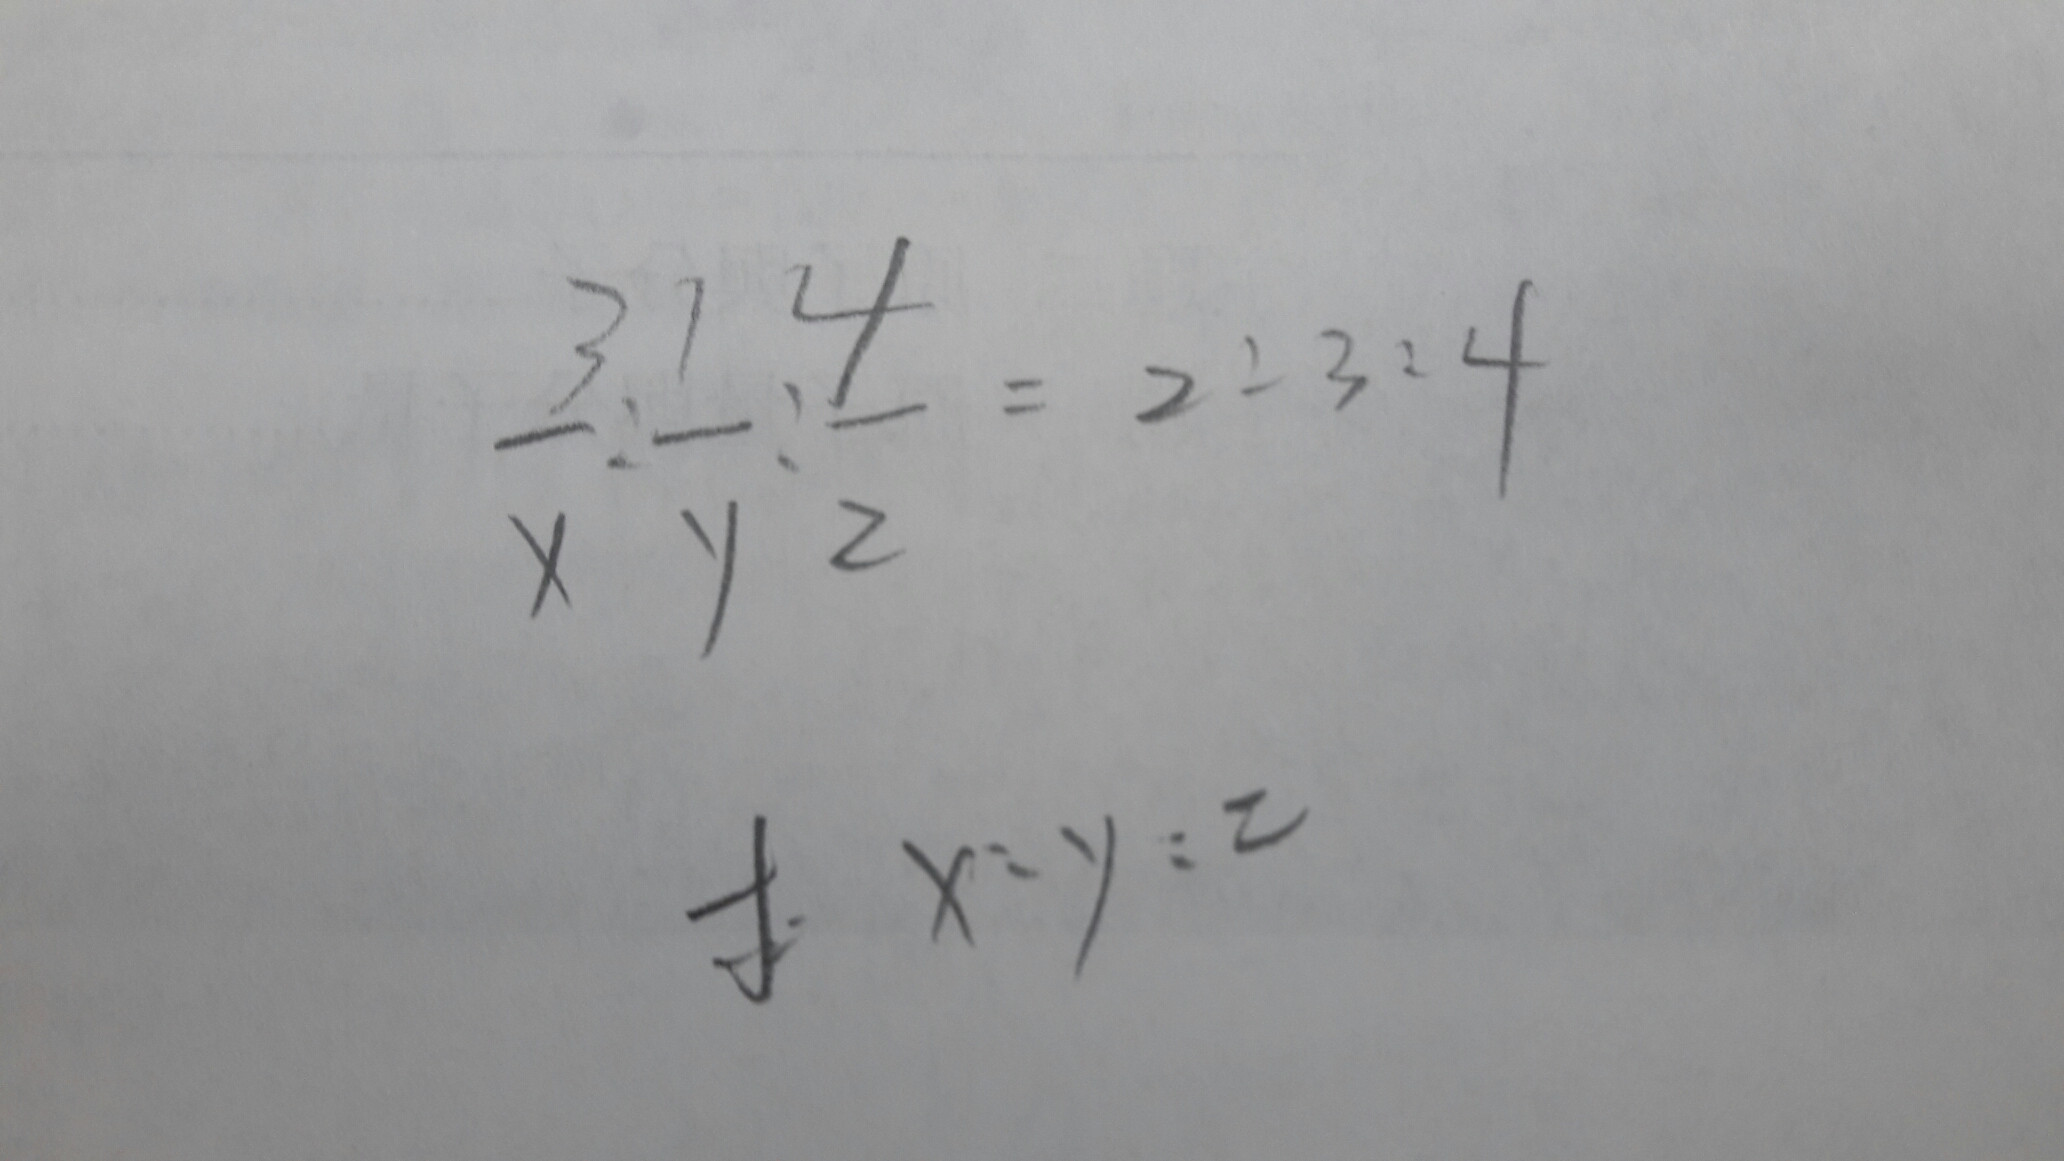 3/x : 7/y : 4/z = 2:3:4
求 x:y:z